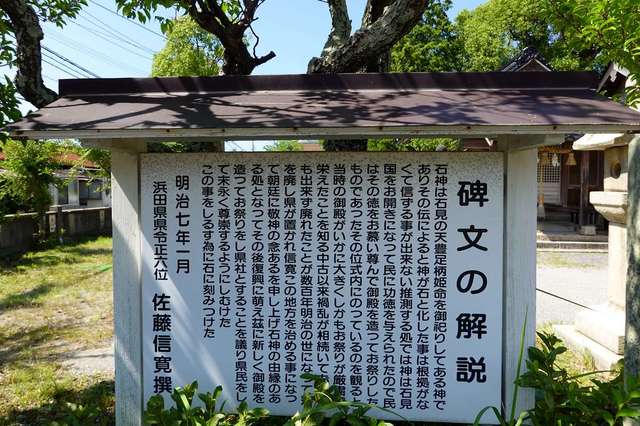 碑文の解説
石神は石見の天豊足柄姫命を御祀りしてある神で
ありその伝によると神が石と化した事は根拠がな
くて信ずる事が出来ない推測する処では神は石見
国をお開きになって民に功徳を与えられたので民
はその徳をお慕い尊んで御殿を造ってお祭りした
ものであったその位式内にのっているのを観ると
当時の御殿がいかに大きくしかもお祭りが厳粛
栄えたことを知る中古以来禍乱が相続いて
も出来ず廃れたことが数百年明治の世にな
を廃し県が置かれ信寛この地方を治める事になっ
て朝廷に敬神の念あるを申し上げ石神の由緒のあ
る処となってその後復興に萌え玆に新しく御殿を
造ってお祭りをし県社とすることを議り県民をし
て末永く尊崇するようにしむけた
この事をしるす為に石に刻みつけた
明治七年一月
浜田県県令正六位 佐藤信寛撰